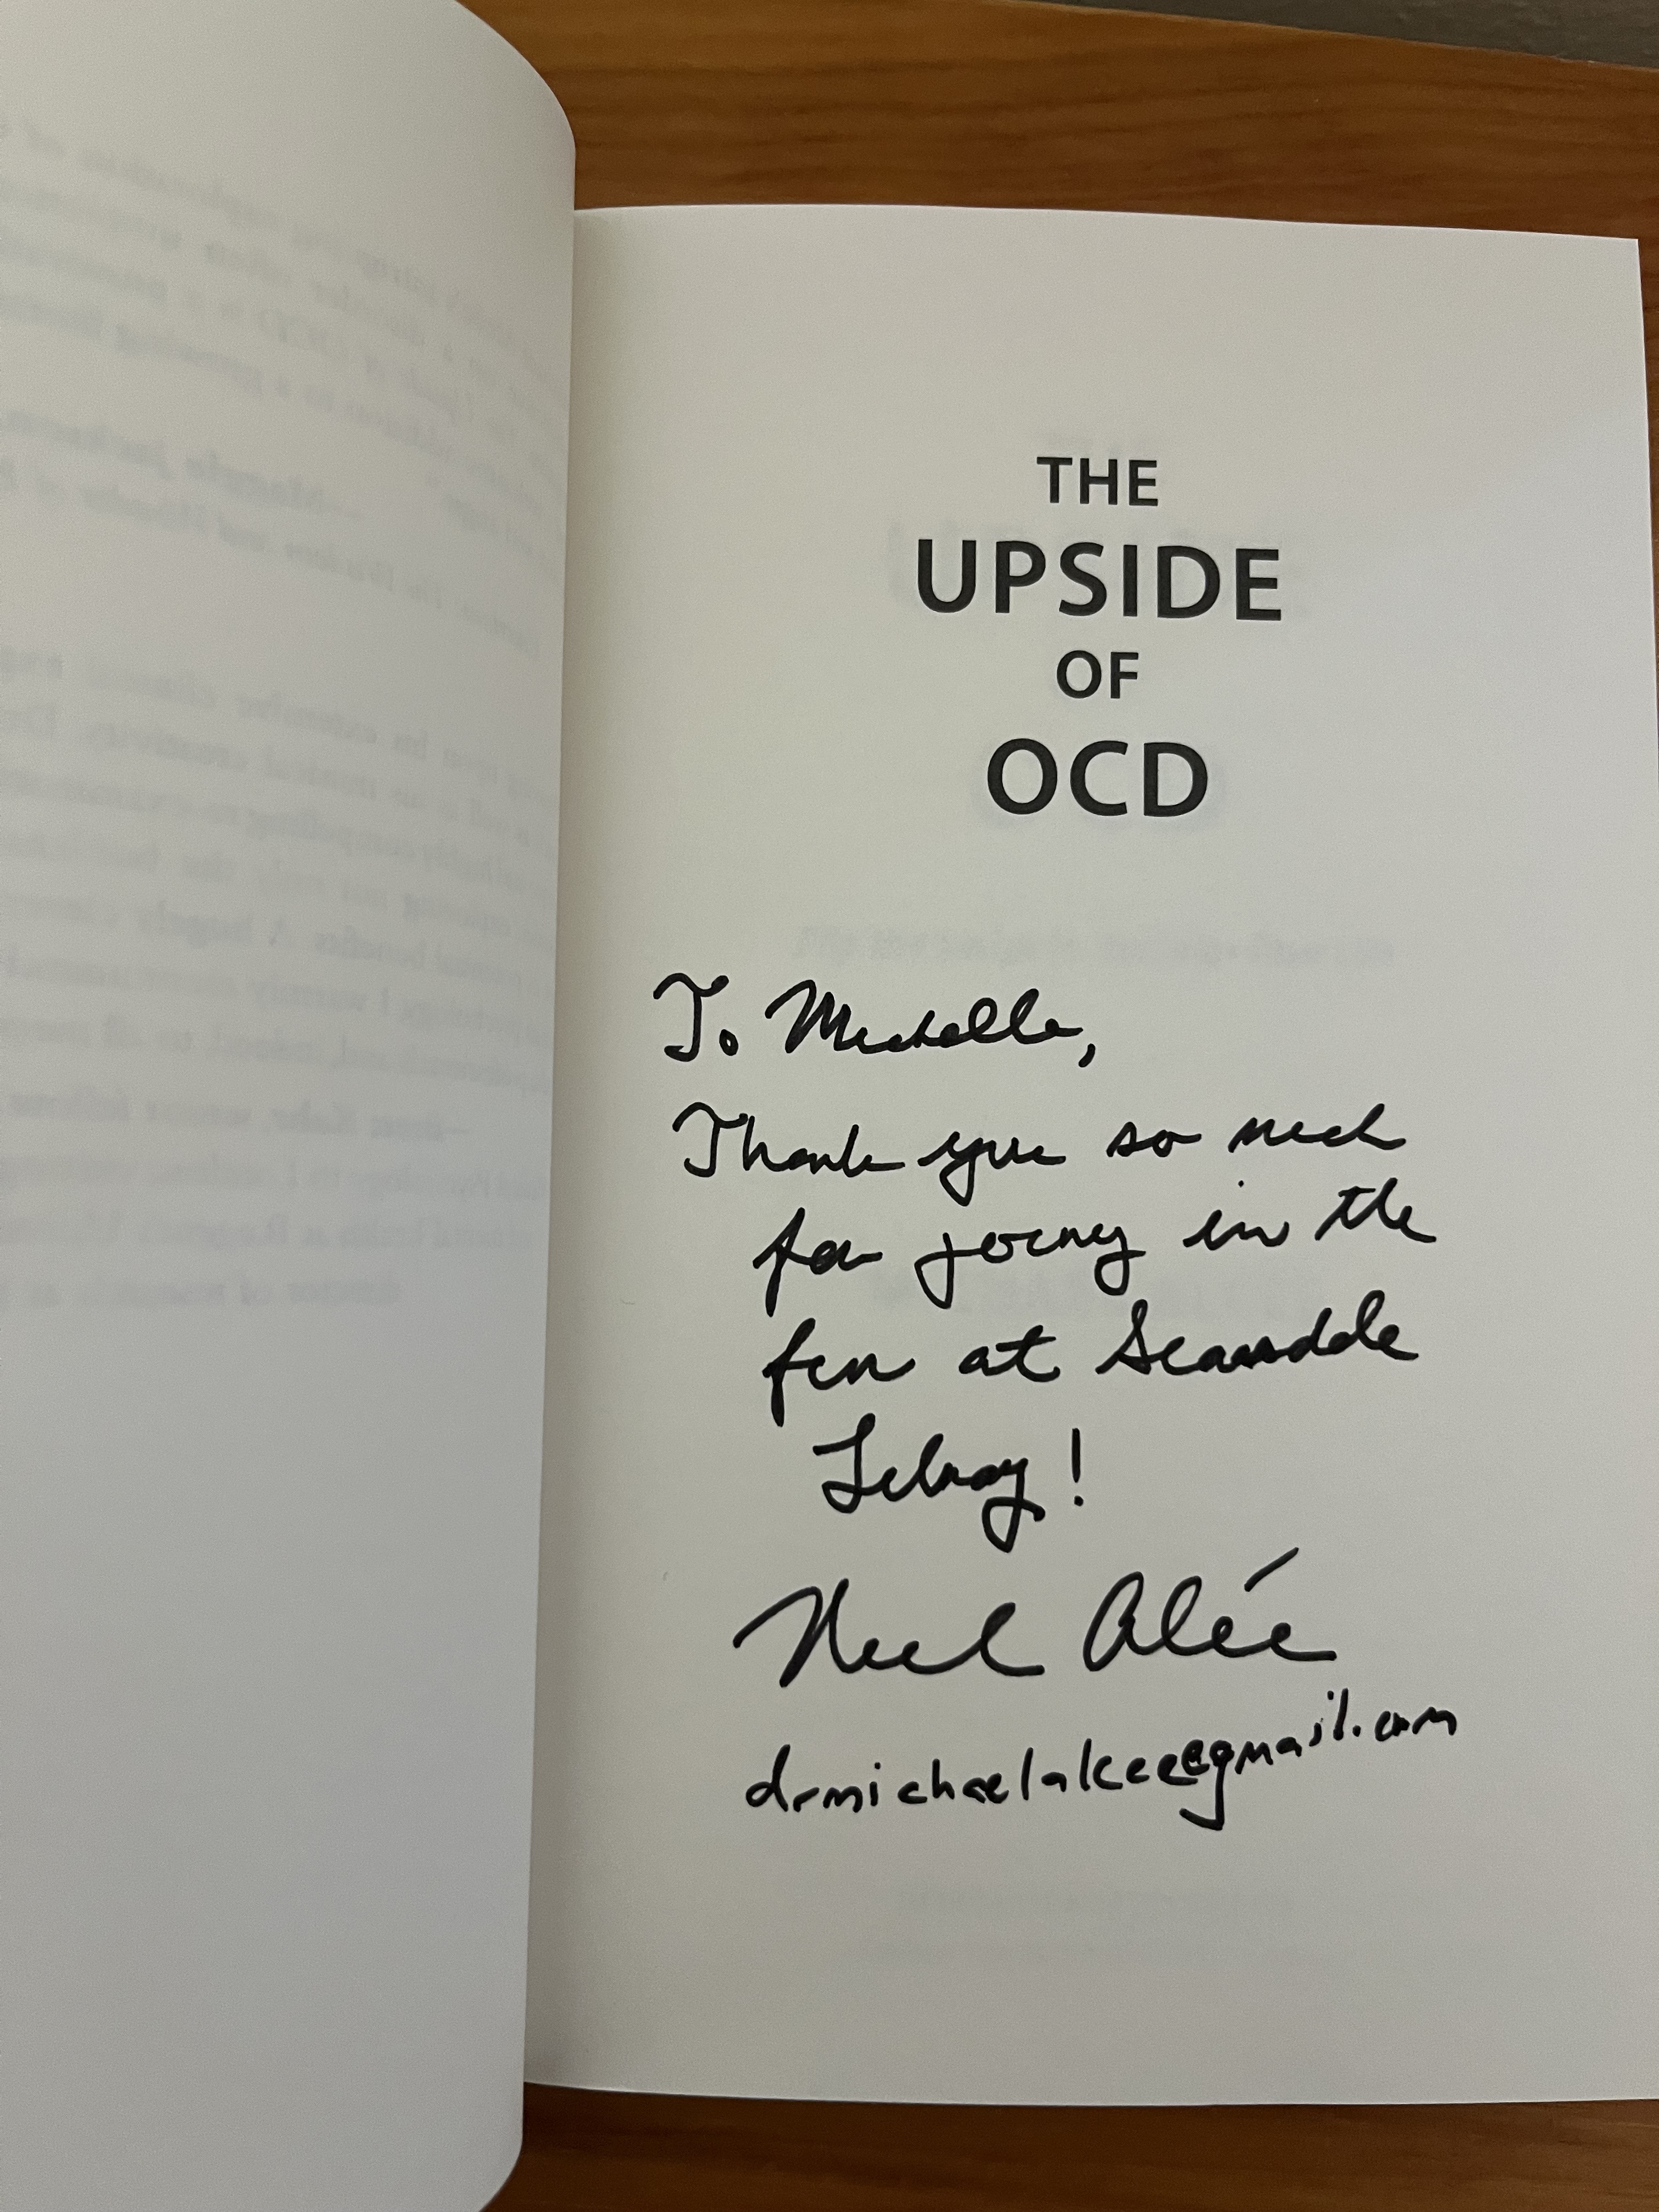 THE
UPSIDE
OF
OCD
To Michelle,
Thank you so much
for joining in the
fun at Scarsdale
Library!
Michael Alcée
drmichaelalcee@gmail.com